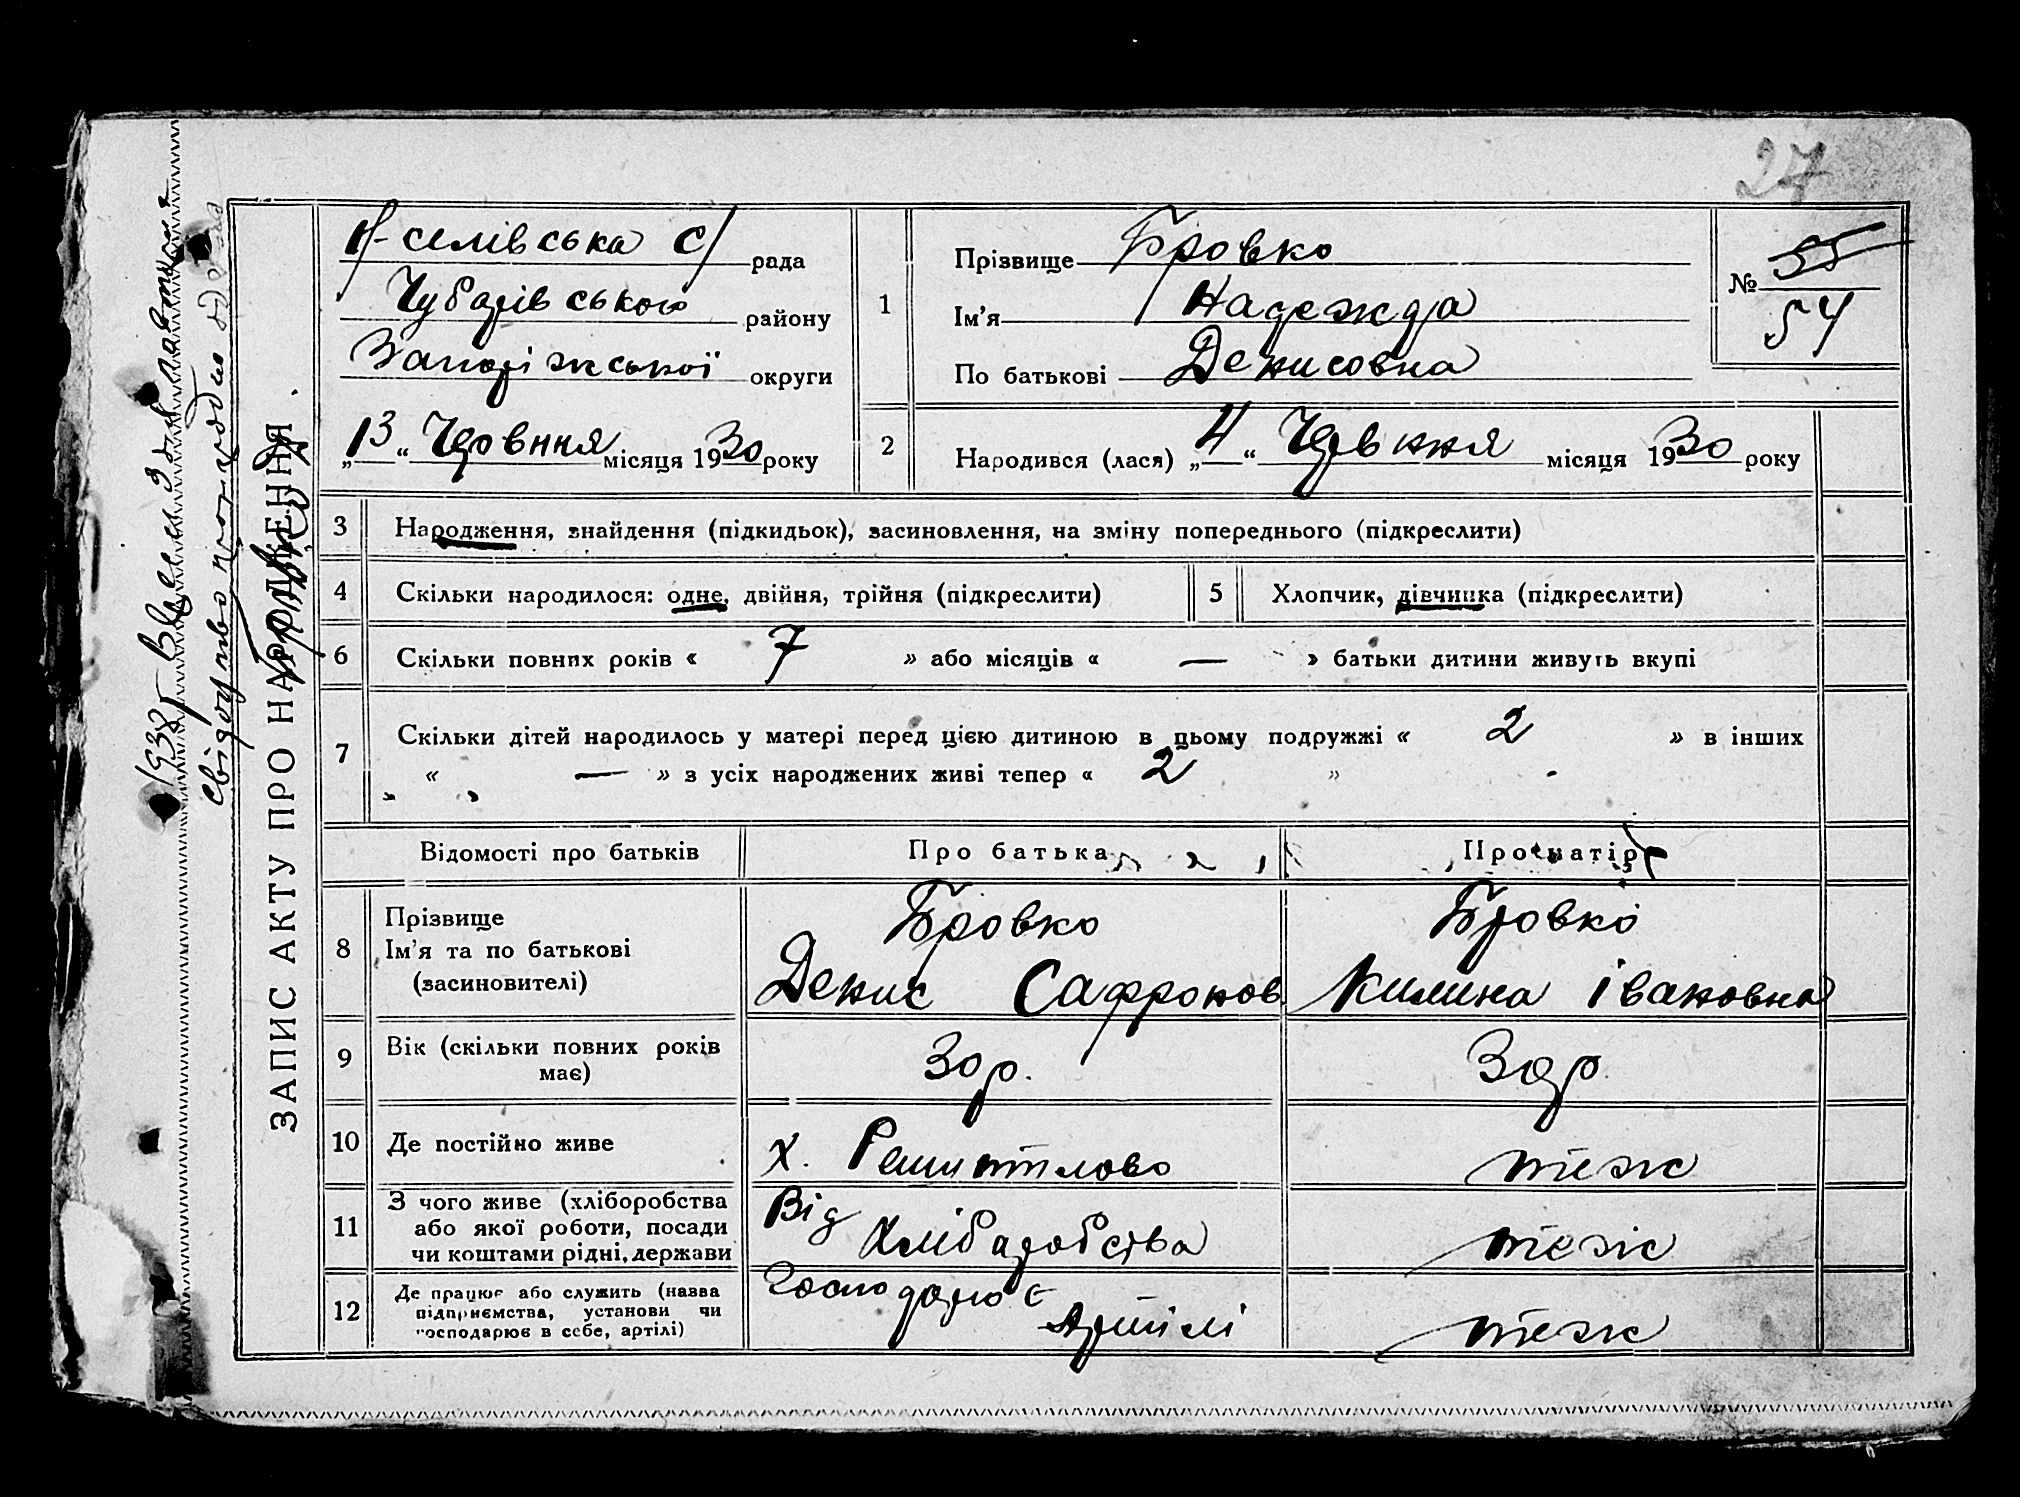 27
ЗАПИС АКТУ ПРО НАРОДЖЕННЯ
Н-селівська С/ рада
Чубарівського району
Запоріжської округи
„13“ Червння місяця 1930 року
1
Прізвище Бровко
Ім'я Надежда
По батькові Денисовна
№ 55
54
2
Народився (лася) „4“ Червння місяця 1930 року
3 Народження, знайдення (підкидьок), засиновлення, на зміну попереднього (підкреслити)
4 Скільки народилося: одне, двійня, трійня (підкреслити)
5 Хлопчик, дівчинка (підкреслити)
6 Скільки повних років « 7 » або місяців « — » батьки дитини живуть вкупі
7 Скільки дітей народилось у матері перед цією дитиною в цьому подружжі « 2 » в інших
« — » з усіх народжених живі тепер « 2 »
Відомості про батьків Про батька Про матір
8 Прізвище
Ім'я та по батькові
(засиновителі)
Бровко
Денис Сафронов
Бровко
Килина Івановна
9 Вік (скільки повних років
має)
30 р.
30 р.
10 Де постійно живе
х. Решитилово
теж
11 З чого живе (хліборобства
або якої роботи, посади
чи коштами рідні, держави
Від
Хлібаробства
теж
12 Де працює або служить (назва
підприємства, установи чи
господарює в себе, артілі)
Господарює
Артілі
теж
1938г
свідоцтво